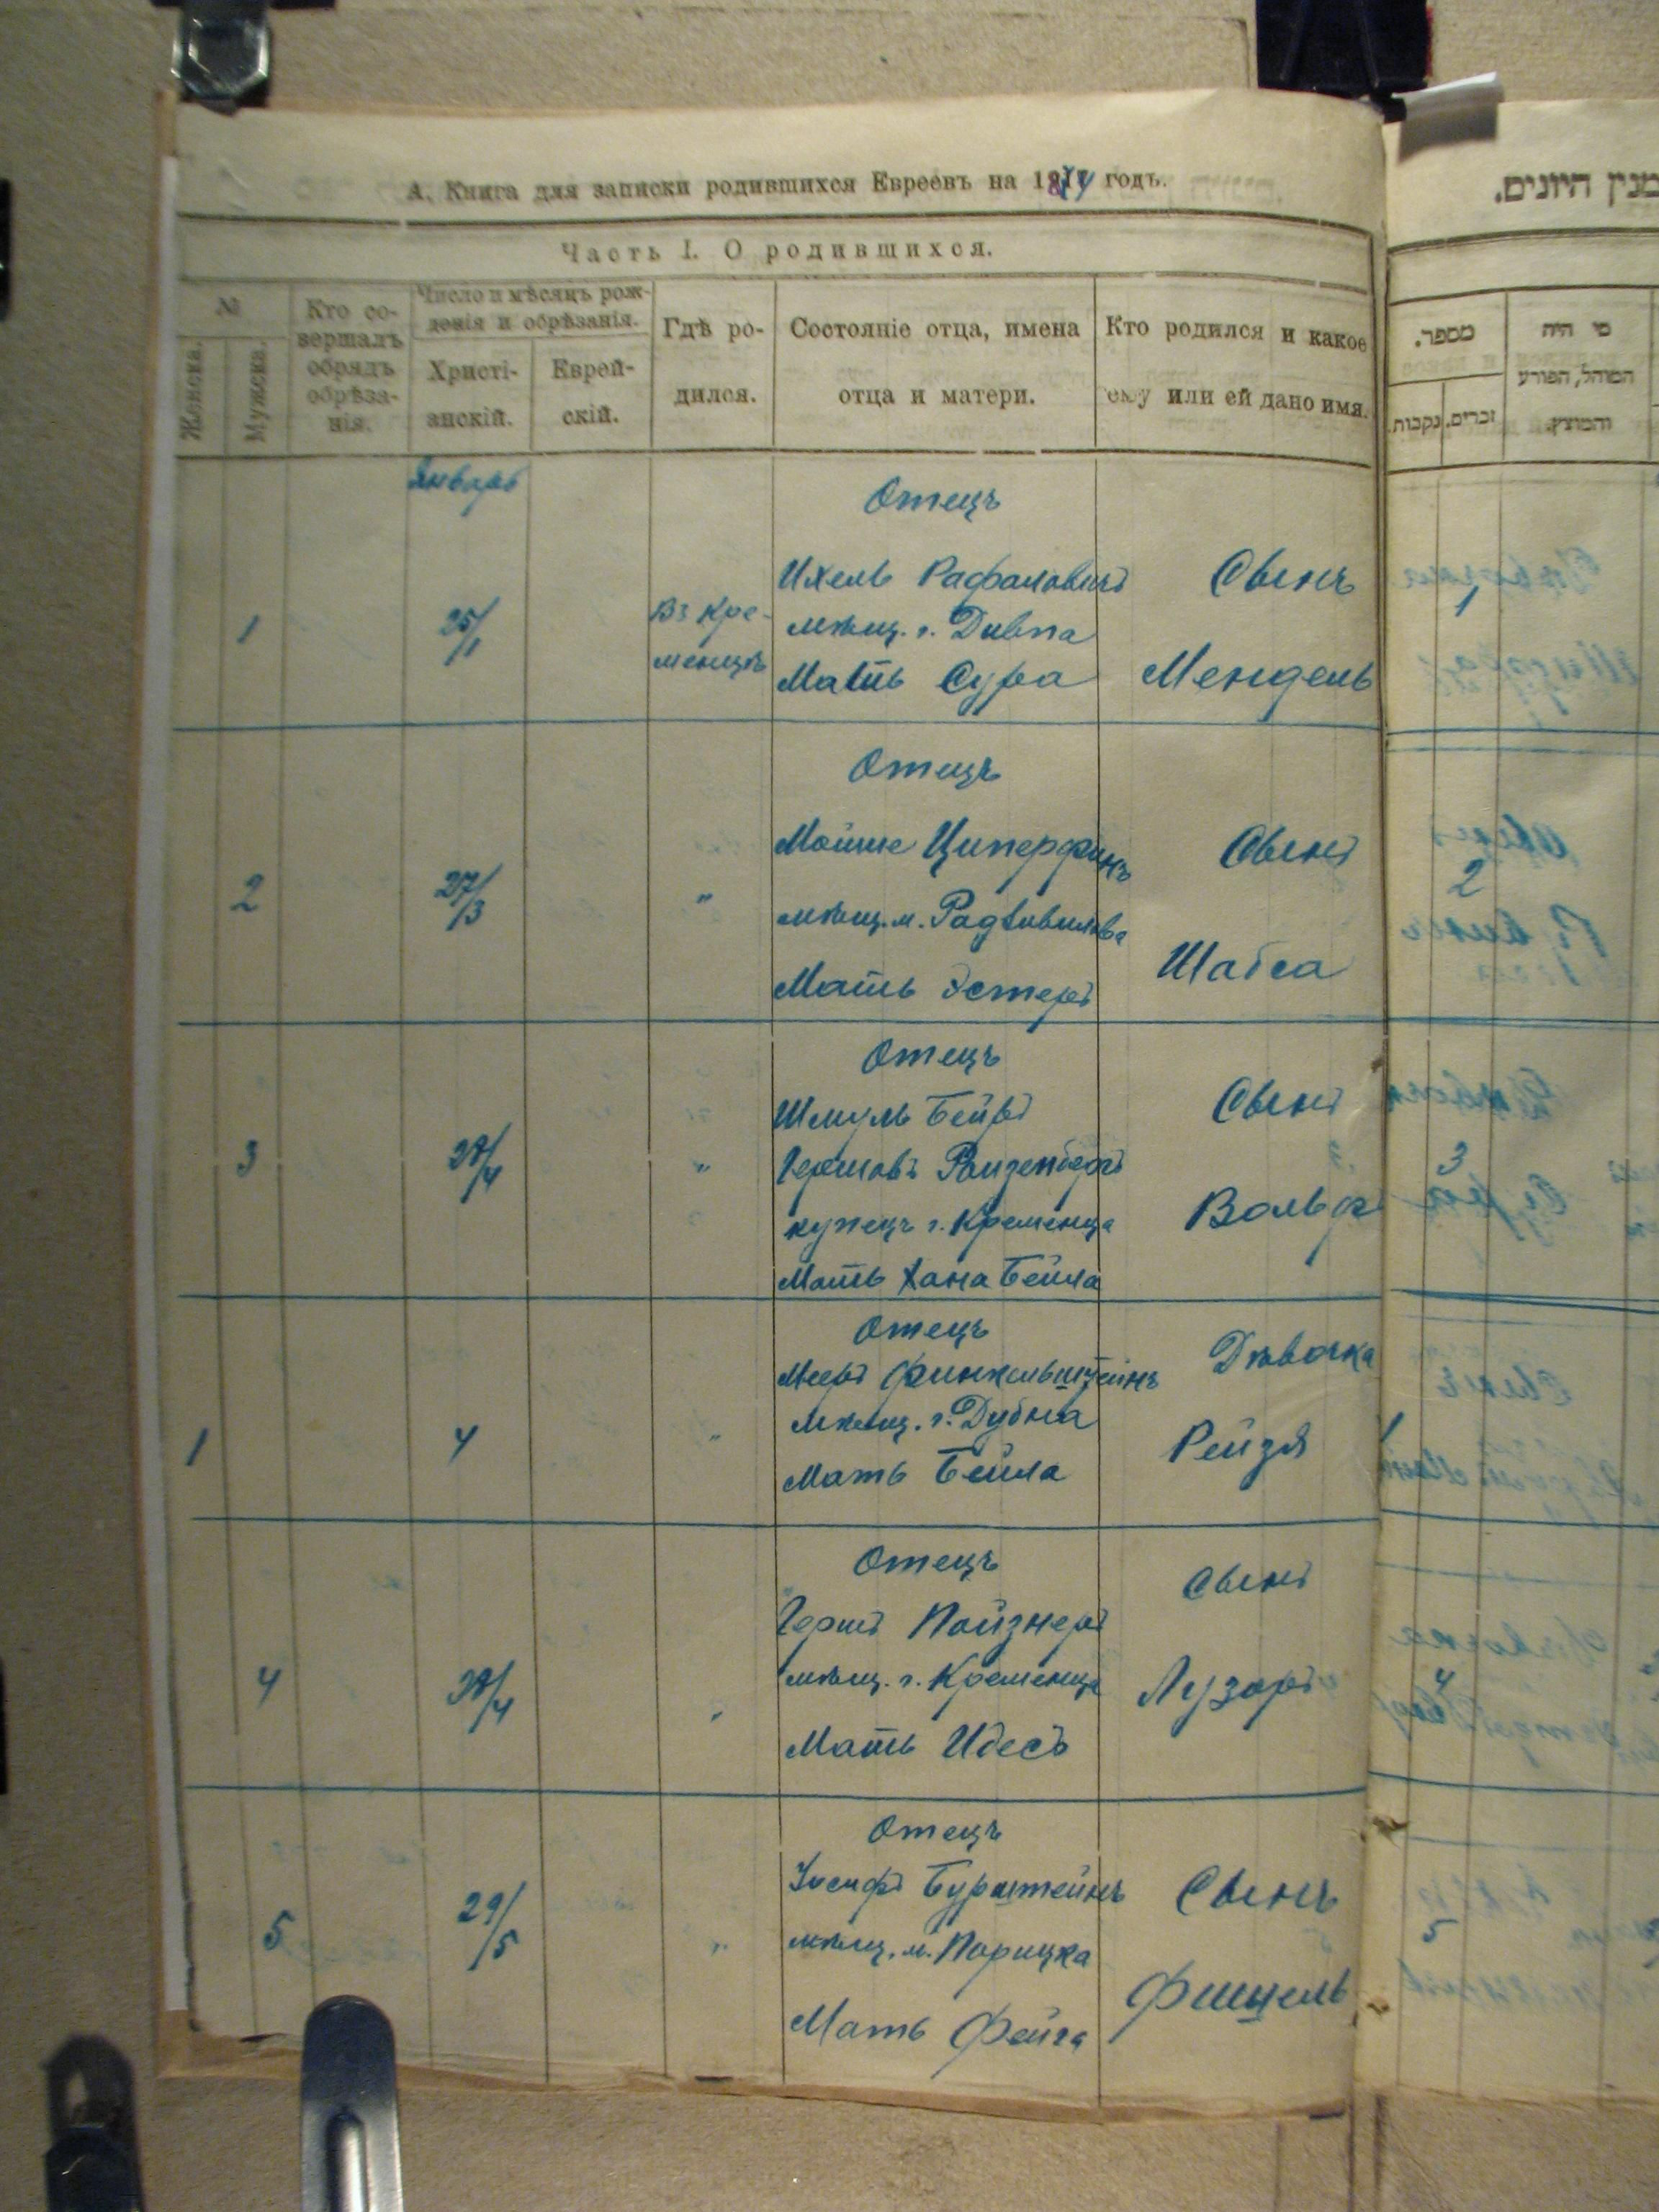 А. Книга для записки родившихся Евреевъ на годъ.
Часть I. О родившихся.
№
Женска.
Мужска.
Кто со-
вершалъ
обрядъ
обрѣза-
нія.
Число и мѣсяцъ рож-
денія и обрѣзанія.
Христі-
анскій.
Еврей-
скій.
Гдѣ ро-
дился.
Состояніе отца, имена
отца и матери.
Кто родился и какое
ему или ей дано имя.
Январь
1
25/1
Въ Кре-
менцѣ
Отецъ
Ихель Рафаловичъ
мѣщ. г. Дубна
Мать Сура
Сынъ
Мендель
2
27/3
"
Отецъ
Мойше Циперфинъ
мѣщ. м. Радзивилова
Мать Эстеръ
Сынъ
Шабса
3
"
Отецъ
Шмуль Бейръ
Гершовъ Розенбергъ
купецъ г. Кременца
Мать Хана Бейла
Сынъ
Вольф
1
4
"
Отецъ
Мееръ Финкельштейнъ
мѣщ. г. Дубна
Мать Бейла
Дѣвочка
Рейзя
4
"
Отецъ
Гершъ Пойзнеръ
мѣщ. г. Кременца
Мать Идесъ
Сынъ
Лузаръ
5
29/5
"
Отецъ
Іосифъ Бурштейнъ
мѣщ. м. Порицка
Мать Фейга
Сынъ
Фишель
מנין היונים.
מספר.
נקבות.
זכרים.
מי היה
המוהל, הפורע
והמוצץ.
1
2
3
4
5